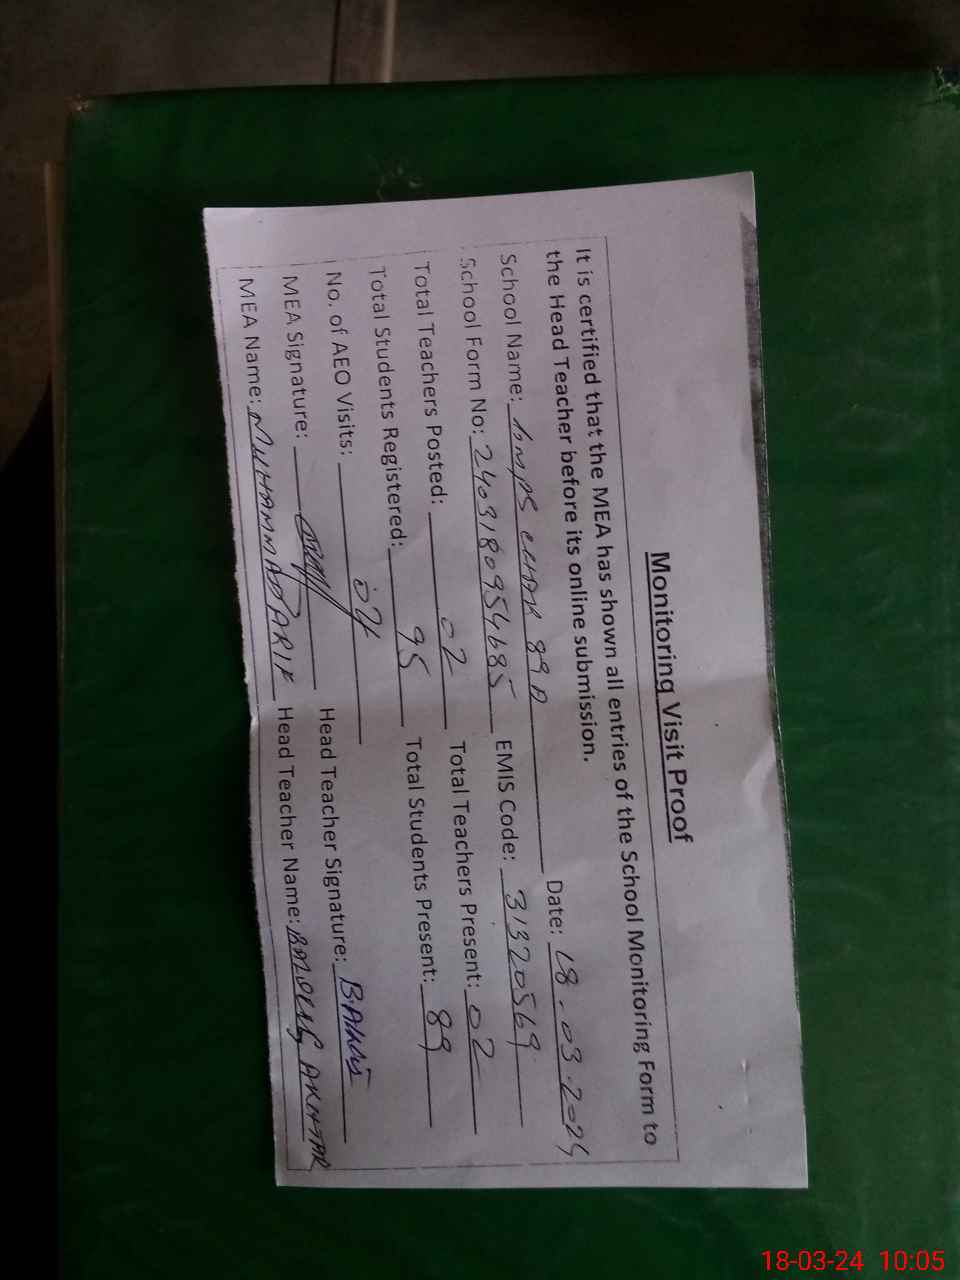 Monitoring Visit Proof
It is certified that the MEA has shown all entries of the School Monitoring Form to
the Head Teacher before its online submission.
School Name: GMPS CHAK 89 A Date: 18.03.2024
School Form No: 2403180954685 EMIS Code: 31320569
Total Teachers Posted: 02 Total Teachers Present: 02
Total Students Registered: 95 Total Students Present: 89
No. of AEO Visits:
MEA Signature: Head Teacher Signature:
MEA Name: MUHAMMAD ARIF Head Teacher Name: AKHTAR
18-03-24 10:05